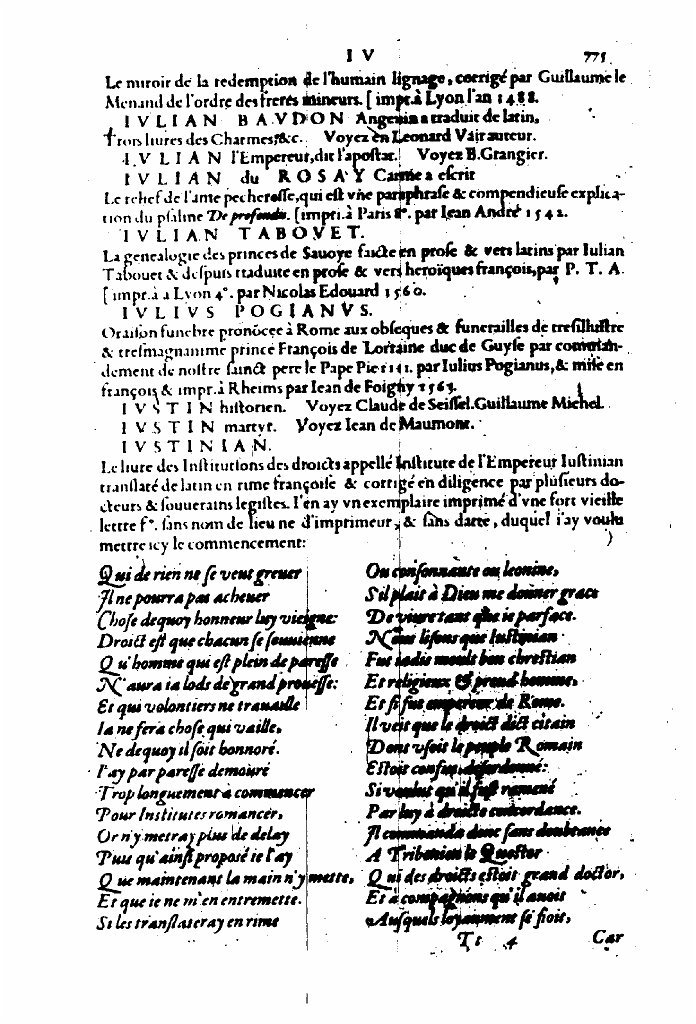 I V 775
Le miroir de la redemption de l'humain lignage, corrigé par Guillaume le
Menand de l'ordre des freres mineurs. [impr. à Lyon l'an 1488.
IVLIAN BAVDON Angevin a traduit de latin,
Trois liures des Charmes, &c. Voyez en Leonard Vair auteur.
IVLIAN l'Empereur, dit l'apostat. Voyez B. Grangier.
IVLIAN du ROSAY Carme a escrit
Le relief de l'ame pecheresse, qui est vne paraphrase & compendieuse explica-
tion du psalme De profundis. [impri. à Paris 8°. par Iean André 1542.
IVLIAN TABOVET.
La genealogie des princes de Sauoye faicte en prose & vers latins par Iulian
Tabouet & despuis traduite en prose & vers heroïques françois, par P. T. A.
[impr. à a Lyon 4°. par Nicolas Edouard 1560.
IVLIVS POGIANVS.
Oraison funebre pronõcee à Rome aux obseques & funerailles de tresillustre
& tresmagnanime prince François de Lorraine duc de Guyse par comman-
dement de nostre sainct pere le Pape Pie IIII. par Iulius Pogianus, & mise en
françois & impr. à Rheims par Iean de Foigny 1563.
IVSTIN historien. Voyez Claude de Seissel. Guillaume Michel.
IVSTIN martyr. Voyez Iean de Maumont.
IVSTINIAN.
Le liure des Institutions des droicts appellé Institute de l'Empereur Iustinian
translaté de latin en rime françoise & corrigé en diligence par plusieurs do-
cteurs & souuerains legistes. I'en ay vn exemplaire imprimé d'vne fort vieille
lettre f°. sans nom de lieu ne d'imprimeur, & sans datte, duquel i'ay voulu
mettre icy le commencement:
Qui de rien ne se veut greuer
Il ne pourra pas acheuer
Chose dequoy honneur luy vieigne:
Droict est que chacun se souuienne
Qu'homme qui est plein de paresse
N'aura ia lods de grand prouesse:
Et qui volontiers ne trauaille
Ia ne fera chose qui vaille,
Ne dequoy il soit honnoré.
I'ay par paresse demouré
Trop longuement à commencer
Pour Institutes romancer,
Or n'y metray plus de delay
Puis qu'ainsi proposé ie l'ay
Que maintenant la main n'y mette,
Et que ie ne m'en entremette.
Si les translateray en rime
Ou consonnante ou leonine,
S'il plait à Dieu me donner grace
De viure tant que ie parface.
Nous lisons que Iustinian
Fut iadis moult bon chrestian
Et religieux & preud homme,
Et si fut empereur de Rome.
Il veit que le droict dict citain
Dont vsoit le peuple Romain
Estoit confus, desordonné:
Si voulut qu'il fust ramené
Par luy à droicte concordance.
Il commanda donc sans doubtance
A Tribonian le Questor
Qui des droicts estoit grand doctor,
Et à compagnons qu'il auoit
Ausquels loyaument se fioit,
Tt 4 Car